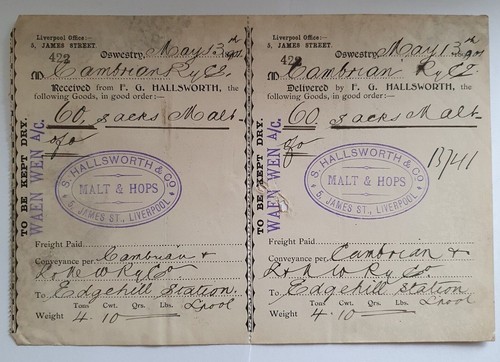 Liverpool Office:—
5, JAMES STREET.
Oswestry, May 13th
422
Cambrian Ry Co.
Received from F. G. HALLSWORTH, the
following Goods, in good order:—
60 Sacks Malt
TO BE KEPT DRY.
WAEN WEN A/C.
S. HALLSWORTH & CO
MALT & HOPS
5, JAMES ST., LIVERPOOL
Freight Paid
Conveyance per Cambrian &
L & N W Ry Co
To Edgehill Station.
L'pool
Tons Cwt. Qrs. Lbs.
Weight 4. 10
Liverpool Office:—
5, JAMES STREET.
Oswestry, May 13th
422
Cambrian Ry Co.
Delivered by F. G. HALLSWORTH, the
following Goods, in good order:—
60 Sacks Malt
13741
TO BE KEPT DRY.
WAEN WEN A/C.
S. HALLSWORTH & CO
MALT & HOPS
5, JAMES ST., LIVERPOOL
Freight Paid
Conveyance per Cambrian &
L & N W Ry Co
To Edgehill Station
L'pool
Tons Cwt. Qrs. Lbs.
Weight 4. 10